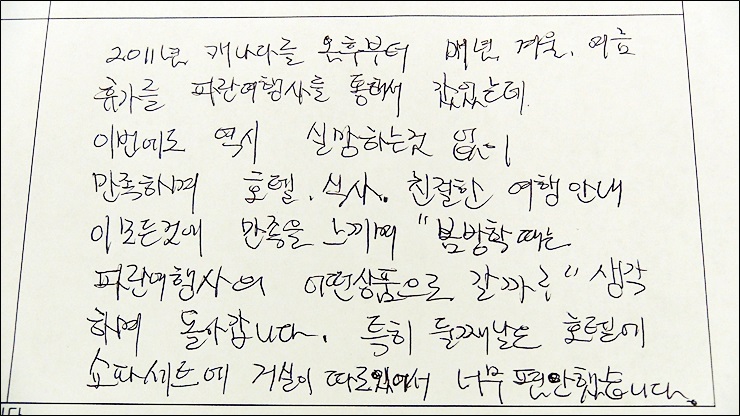 2011년 캐나다를 온후부터 매년, 겨울, 여름
휴가를 파란여행사를 통해서 갔었는데
이번에도 역시 실망하는것 없이
만족하게 호텔, 식사, 친절한 여행안내
이 모든것에 만족을 느끼며 "봄방학 때는
파란여행사의 어떤상품으로 갈까?" 생각
하며 돌아갑니다. 특히 둘째날은 호텔에
쇼파세트에 거실이 따로있어서 너무 편안했습니다.